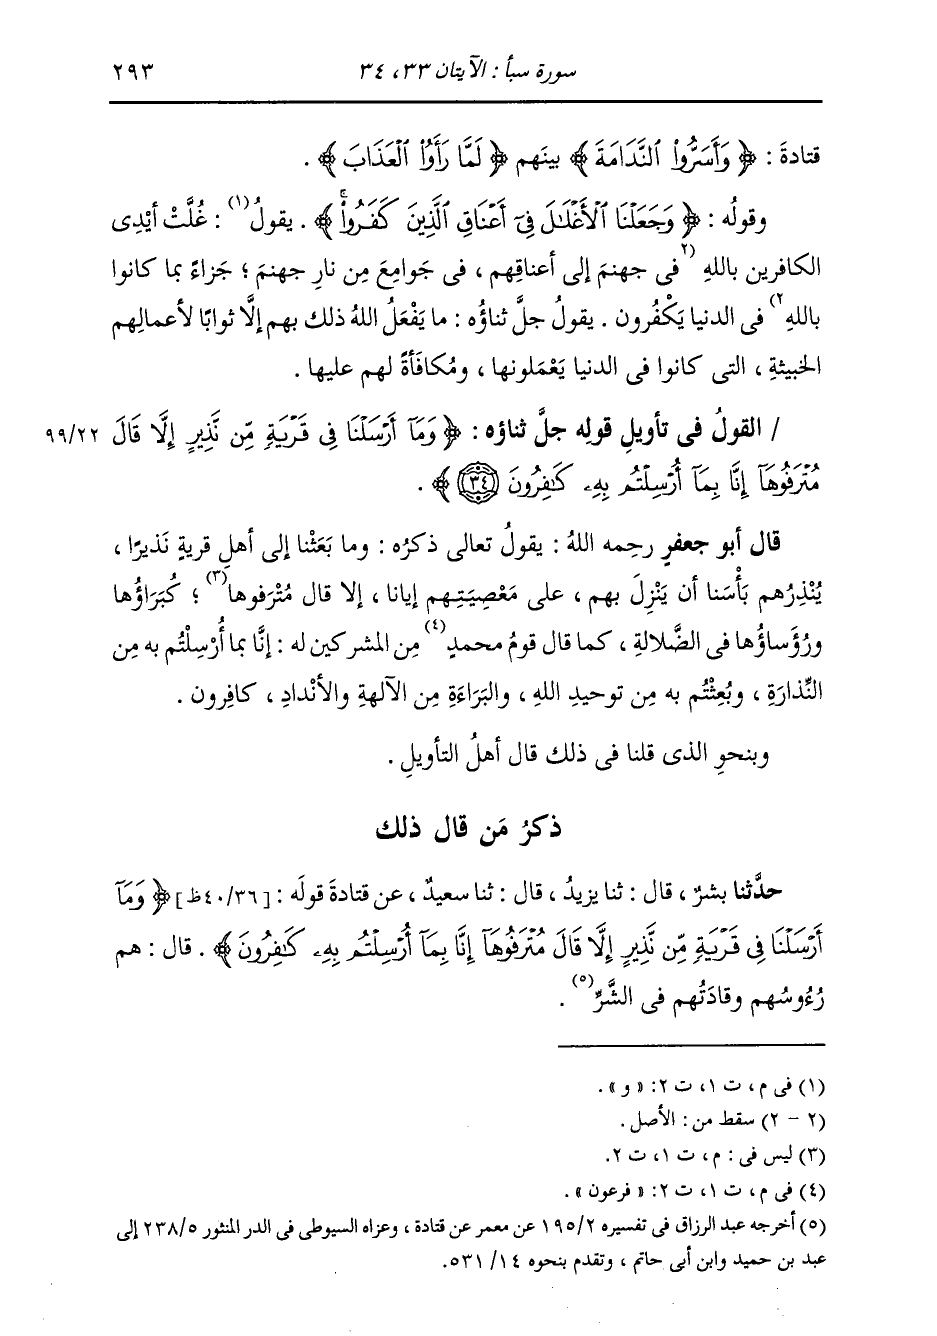 سورة سبأ : الآيتان ٣٣، ٣٤ ٢٩٣
قتادةَ : ﴿ وَأَسَرُّوا۟ ٱلنَّدَامَةَ ﴾ بينَهم ﴿ لَمَّا رَأَوُا۟ ٱلْعَذَابَ ﴾ .
وقولُه : ﴿ وَجَعَلْنَا ٱلْأَغْلَـٰلَ فِىٓ أَعْنَاقِ ٱلَّذِينَ كَفَرُوا۟ۚ ﴾ . يقولُ(١) : غُلَّتْ أيْدِى
الكافرين باللهِ (٢فى جهنمَ إلى أعناقِهم ، فى جَوامِعَ مِن نارِ جهنمَ ؛ جَزاءً بما كانوا
باللهِ٢) فى الدنيا يَكْفُرون . يقولُ جلَّ ثناؤُه : ما يَفْعَلُ اللهُ ذلك بهم إلَّا ثوابًا لأعمالِهم
الخبيثةِ ، التى كانوا فى الدنيا يَعْمَلونها ، ومُكافَأةً لهم عليها .
/ القولُ فى تأويلِ قولِه جلَّ ثناؤه : ﴿ وَمَآ أَرْسَلْنَا فِى قَرْيَةٍ مِّن نَّذِيرٍ إِلَّا قَالَ ٩٩/٢٢
مُتْرَفُوهَآ إِنَّا بِمَآ أُرْسِلْتُم بِهِۦ كَـٰفِرُونَ ٣٤ ﴾ .
قال أبو جعفرٍ رحِمه اللهُ : يقولُ تعالى ذكرُه : وما بَعَثْنا إلى أهلِ قريةٍ نَذيرًا ،
يُنْذِرُهم بَأْسَنا أن يَنْزِلَ بهم ، على مَعْصِيَتِهم إيانا ، إلا قال مُتْرَفوها(٣) ؛ كُبَرَاؤُها
ورُؤَساؤُها فى الضَّلالةِ ، كما قال قومُ محمدٍ(٤) مِن المشركين له : إنَّا بما أُرْسِلْتُم به مِن
النِّذارَةِ ، وبُعِثْتُم به مِن توحيدِ اللهِ ، والبَرَاءَةِ مِن الآلهةِ والأنْدادِ ، كافِرون .
وبنحوِ الذى قلنا فى ذلك قال أهلُ التأويلِ .
ذكرُ مَن قال ذلك
حدَّثنا بشرٌ ، قال : ثنا يزيدُ ، قال : ثنا سعيدٌ ، عن قتادةَ قولَه : [٤٠/٣٦ظ] ﴿ وَمَآ
أَرْسَلْنَا فِى قَرْيَةٍ مِّن نَّذِيرٍ إِلَّا قَالَ مُتْرَفُوهَآ إِنَّا بِمَآ أُرْسِلْتُم بِهِۦ كَـٰفِرُونَ ﴾ . قال : هم
رُءُوسُهم وقادَتُهم فى الشَّرِّ(٥) .
(١) فى م، ت ١، ت ٢: « و » .
(٢ - ٢) سقط من : الأصل .
(٣) ليس فى : م، ت ١، ت ٢.
(٤) فى م، ت ١، ت ٢: « فرعون » .
(٥) أخرجه عبد الرزاق فى تفسيره ١٩٥/٢ عن معمر عن قتادة ، وعزاه السيوطى فى الدر المنثور ٢٣٨/٥ إلى
عبد بن حميد وابن أبى حاتم ، وتقدم بنحوه ١٤/ ٥٣١.